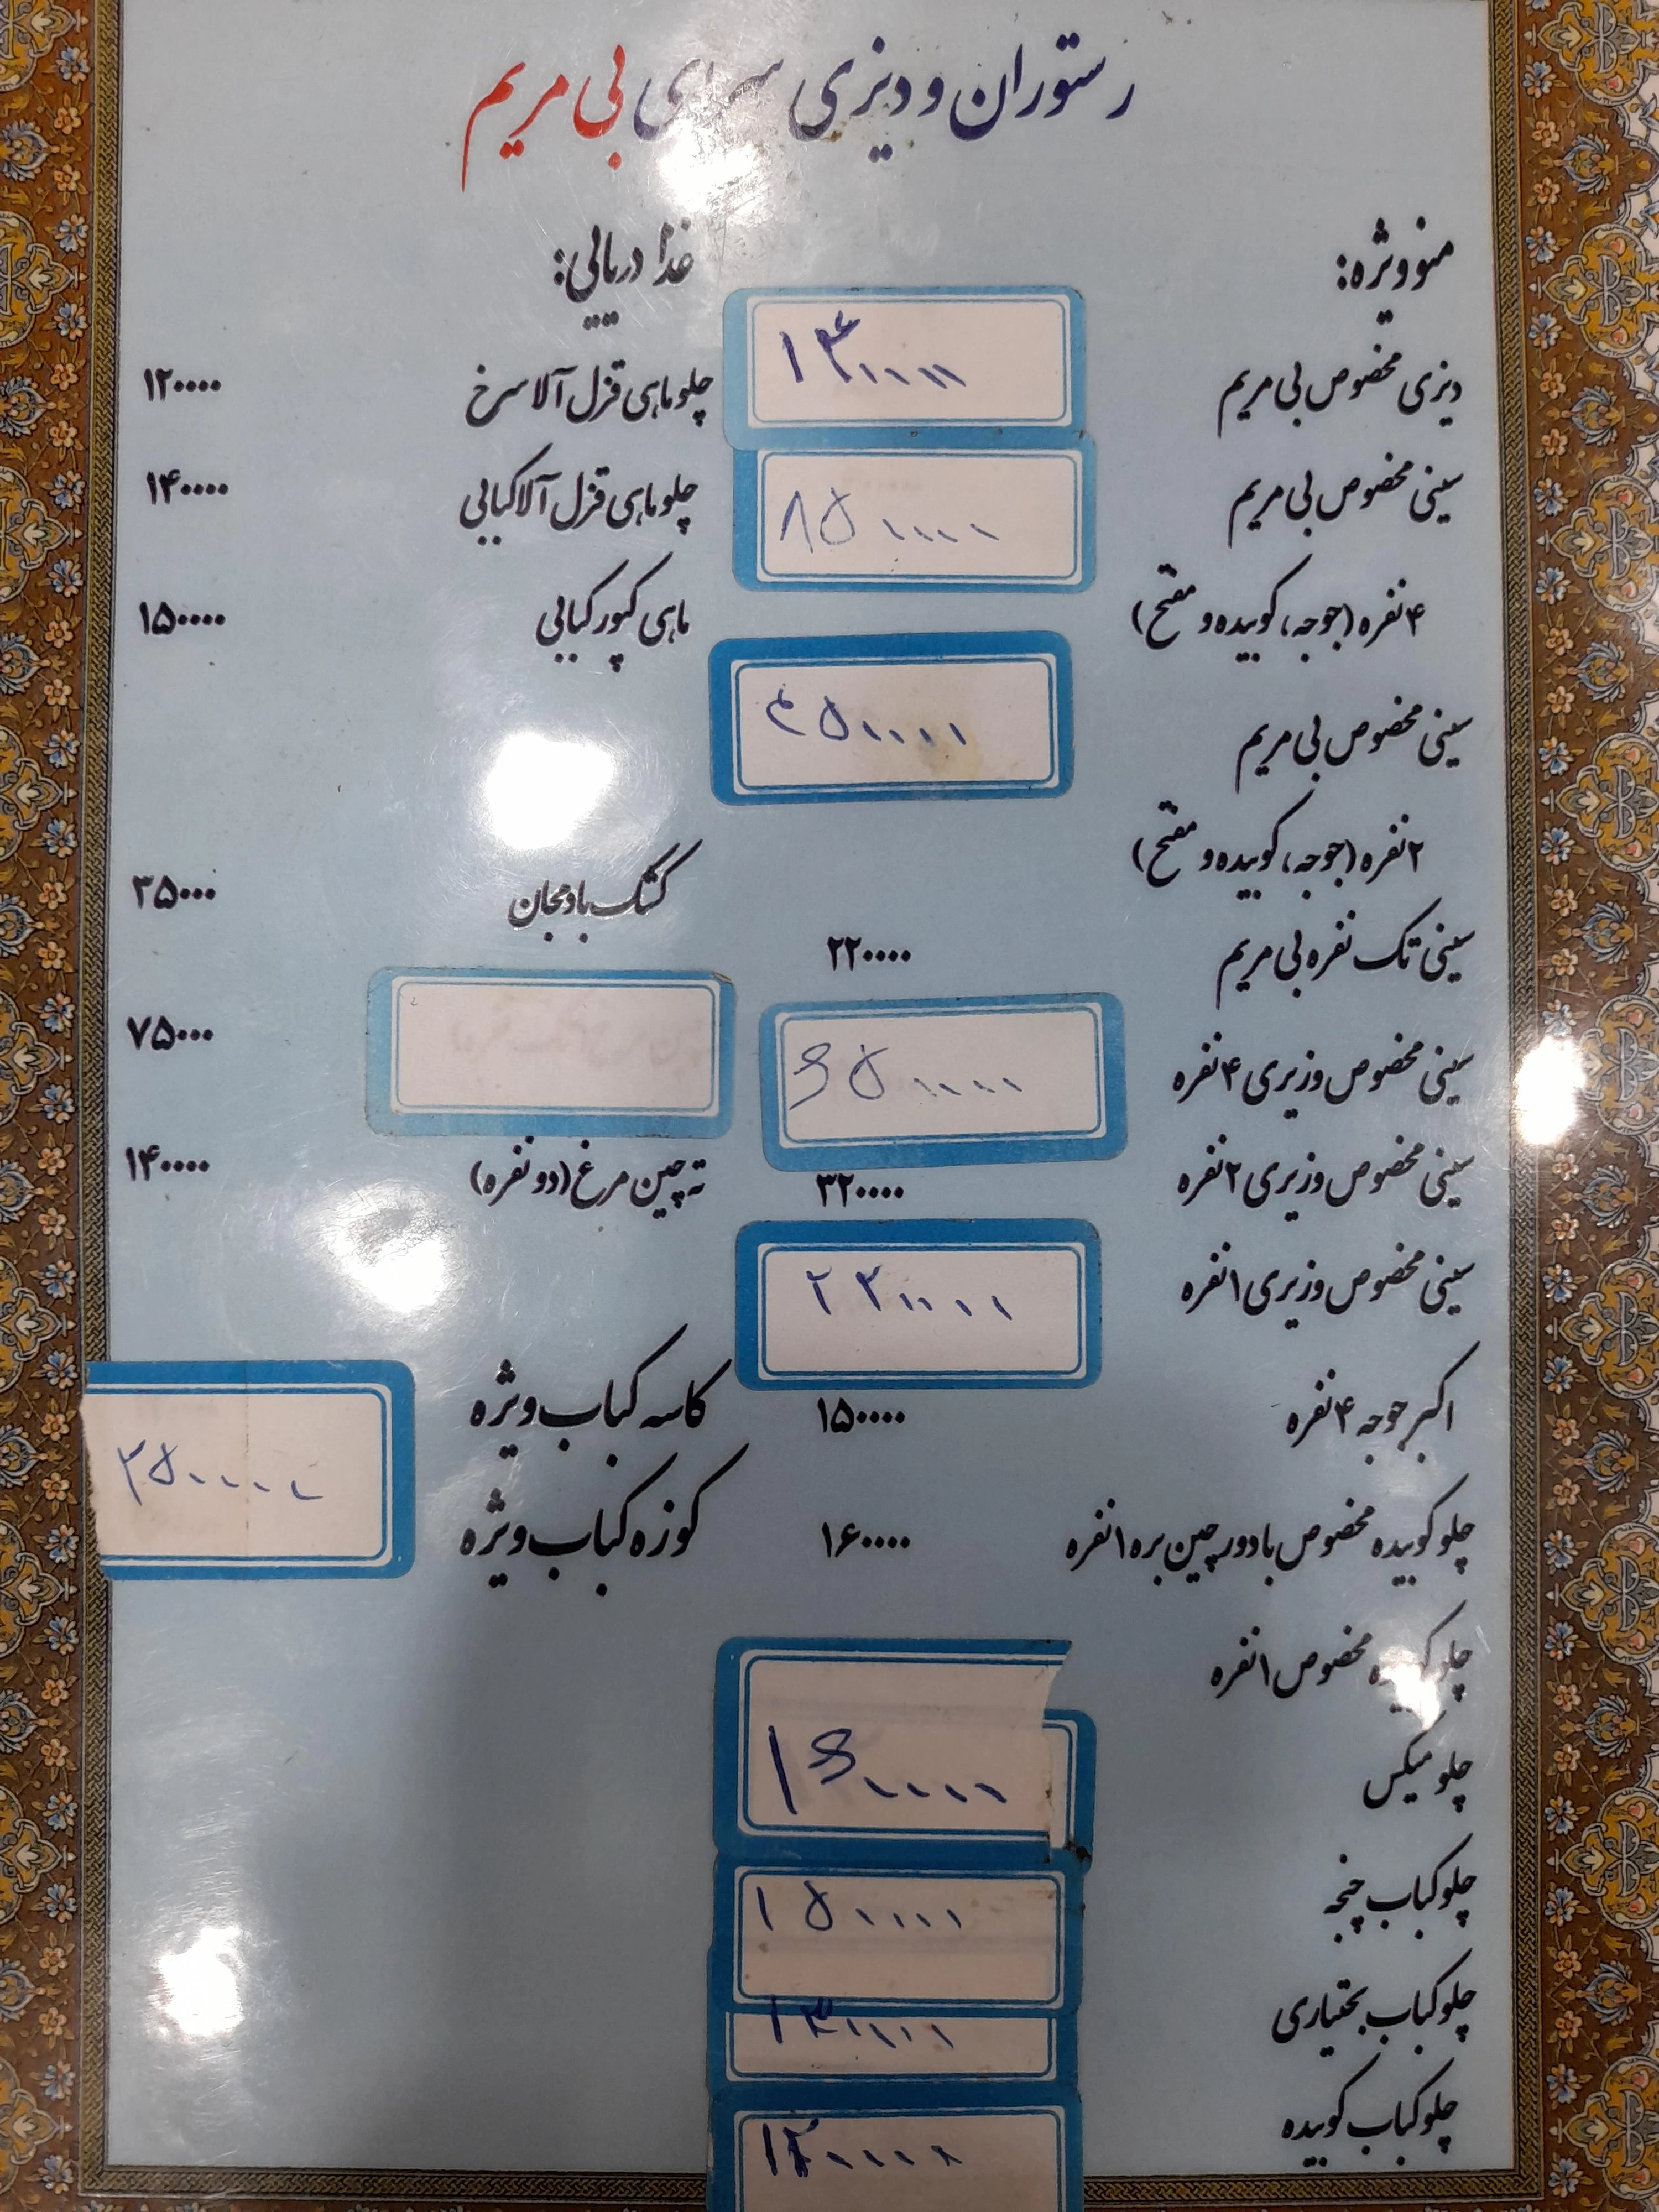 رستوران و دیزی سرای بی مریم
منو ویژه:
دیزی مخصوص بی مریم
سینی مخصوص بی مریم
۸۵۰۰۰۰
۴ نفره (جوجه، کوبیده و مفتح)
سینی مخصوص بی مریم
۴۵۰۰۰۰
۲ نفره (جوجه، کوبیده و مفتح)
سینی تک نفره بی مریم ۲۲۰۰۰۰
سینی مخصوص وزیری ۴ نفره ۶۵۰۰۰۰
سینی مخصوص وزیری ۲ نفره ۳۲۰۰۰۰
سینی مخصوص وزیری ۱ نفره
اکبر جوجه ۴ نفره ۱۵۰۰۰۰
چلو کوبیده مخصوص با دورچین بره ۱ نفره ۱۶۰۰۰۰
چلو کوبیده مخصوص ۱ نفره
چلو میکس ۱۶۰۰۰۰
چلو کباب چنجه ۱۵۰۰۰۰
چلو کباب بختیاری
چلو کباب کوبیده
غذا دریایی:
چلو ماهی قزل آلا سرخ ۱۲۰۰۰۰
چلو ماهی قزل آلا کبابی ۱۴۰۰۰۰
ماهی کپور کبابی ۱۵۰۰۰۰
کشک بادمجان ۳۵۰۰۰
۷۵۰۰۰
ته چین مرغ (دو نفره) ۱۴۰۰۰۰
کاسه کباب ویژه
کوزه کباب ویژه